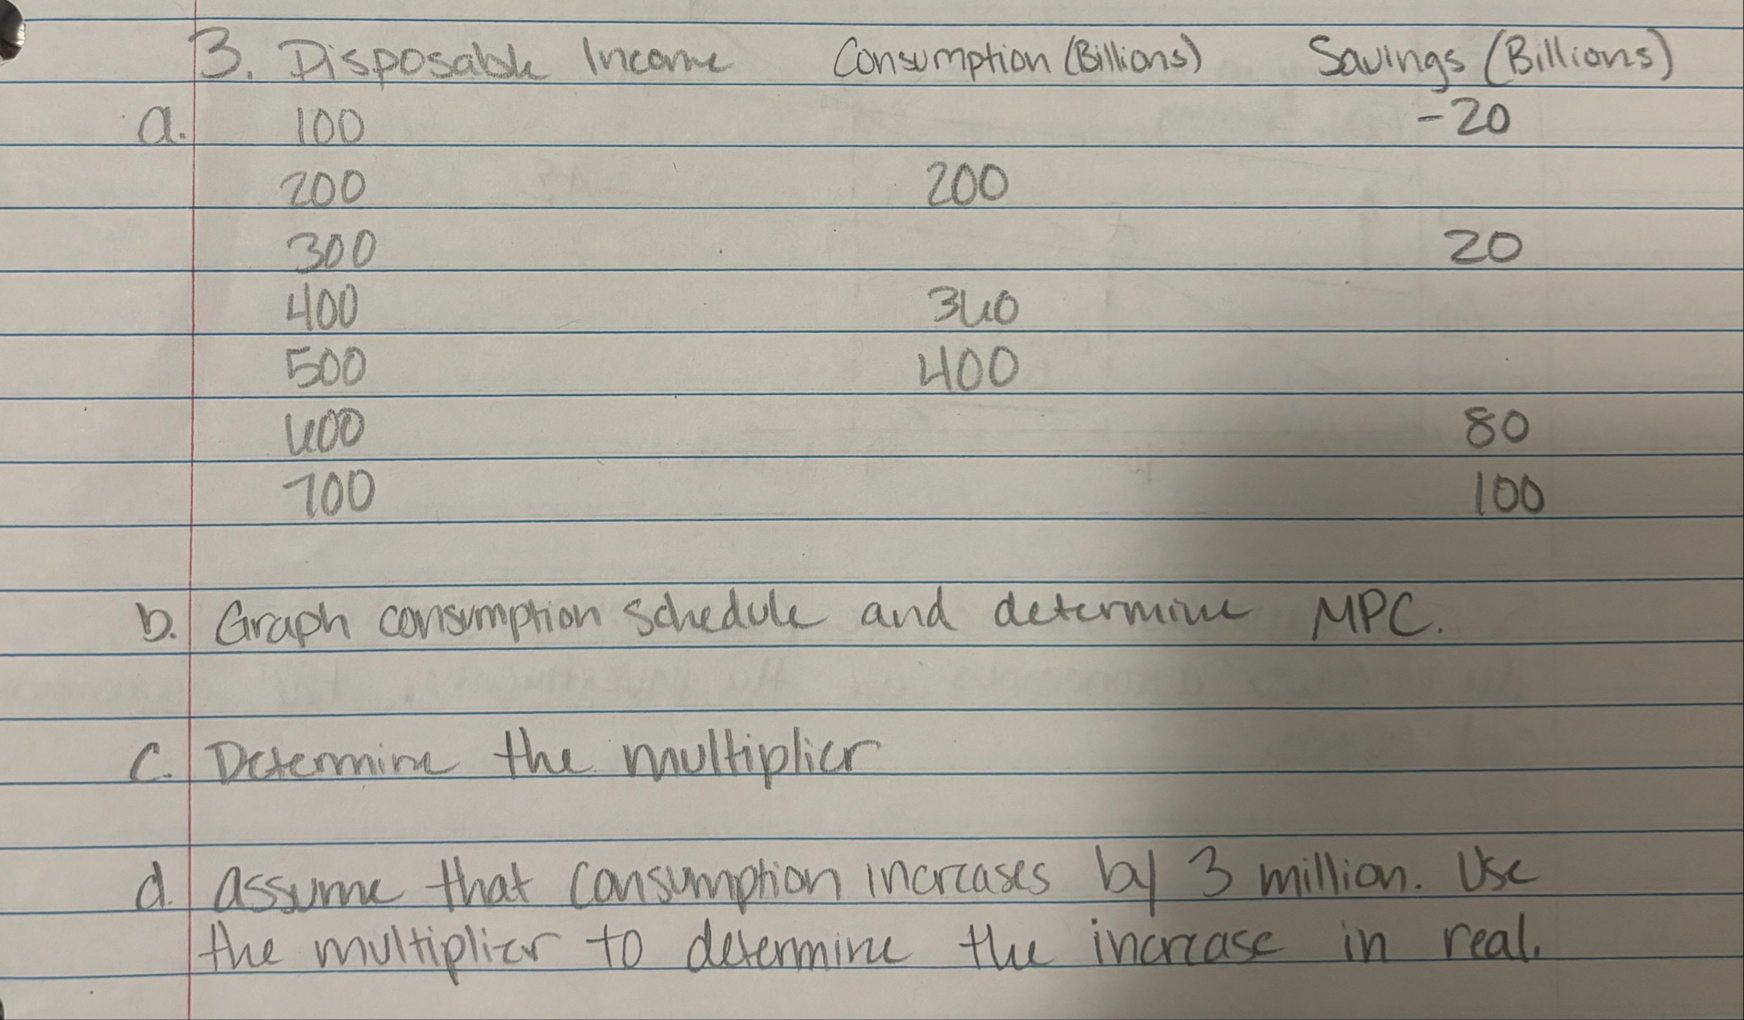 3. Disposable Income Consumption (Billions) Savings (Billions)
a. 100 -20
200 200
300 20
400 360
500 400
600 80
700 100
b. Graph consumption schedule and determine MPC.
c. Determine the multiplier
d. assume that consumption increases by 3 million. Use
the multiplier to determine the increase in real.